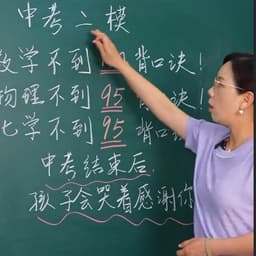 中考二模
数学不到 背口诀！
物理不到95 背口诀！
化学不到95 背口诀！
中考结束后.
孩子会哭着感谢你